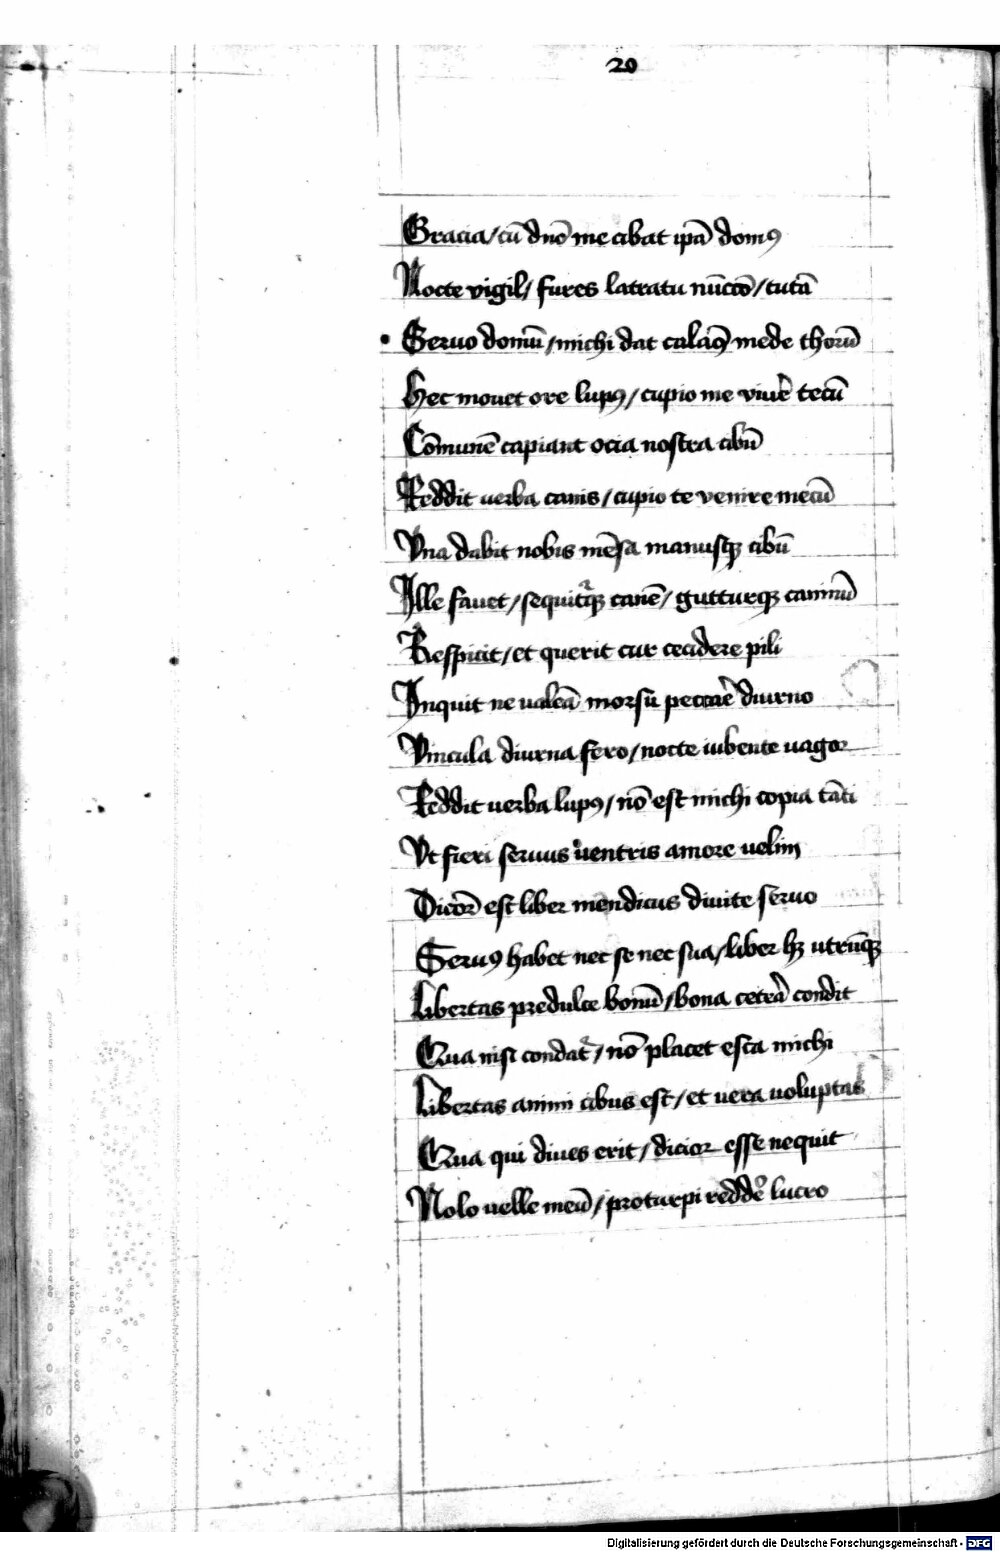 20
Gracia / cū dn̄o me cibat ip̄a domꝰ
Nocte vigil / fures latratu nūccō / tutā
Seruo domū / michi dat culmꝰ mede thorū
Hec mouet ore lupꝰ / cupio me viuẽ tecū
Cōmunē capiant ocia nostra cibū
Reddit uerba canis / cupio te venire mecū
Vna dabit nobis mēsa manusqꝫ cibū
Ille fauet / sequitᷣqꝫ canē / gutturqꝫ caninū
Respicit / et querit cur cecidere pili
Inquit ne ualeā morsu peccãe diurno
Vincula diurna fero / nocte iubente uagor
Reddit uerba lupꝰ / nō est michi copia tāti
Vt fieri seruus uentris amore uelim
Dicōr est liber mendicus diuite seruo
Seruꝰ habet nec se nec sua / liber hꝫ utrūqꝫ
Libertas predulce bonū / bona cetẽa condit
Qua nisi condatᷣ / nō placet esca michi
Libertas animi cibus est / et uera uoluptas
Qua qui diues erit / dicior esse nequit
Nolo uelle meū / pro turpi reddẽ lucro
Digitalisierung gefördert durch die Deutsche Forschungsgemeinschaft - DFG